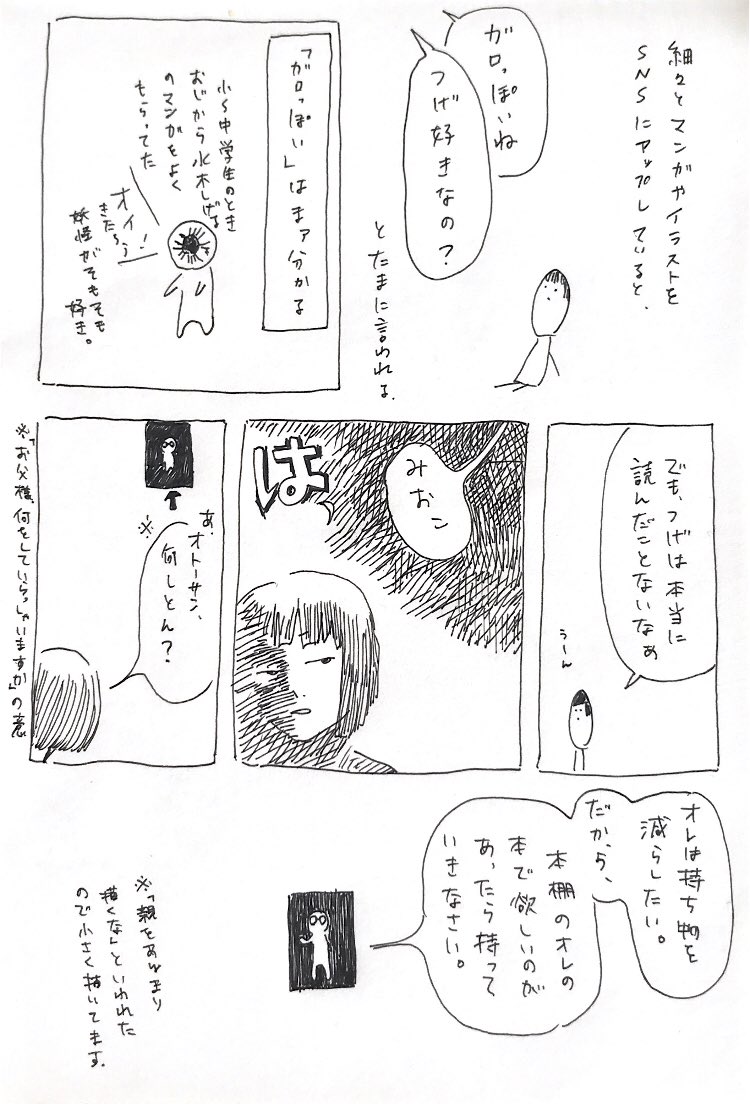 細々とマンガやイラストを
SNSにアップしていると、
ガロっぽいね
つげ好きなの？
とたまに言われる。
「ガロっぽい」はまァ分かる
小〜中学生のとき
おじから水木しげる
のマンガをよく
もらってた
オイ！
きたろう
妖怪がそもそも
好き。
でも、つげは本当に
読んだことないなぁ
うーん
みおこ
はっ
あ、オトーサン、
何しとん？
※
※「お父様、何をしていらっしゃいますか」の意
オレは持ち物を
減らしたい。
だから、
本棚のオレの
本で欲しいのが
あったら持って
いきなさい。
※「親をあんまり
描くな」といわれた
ので小さく描いてます。